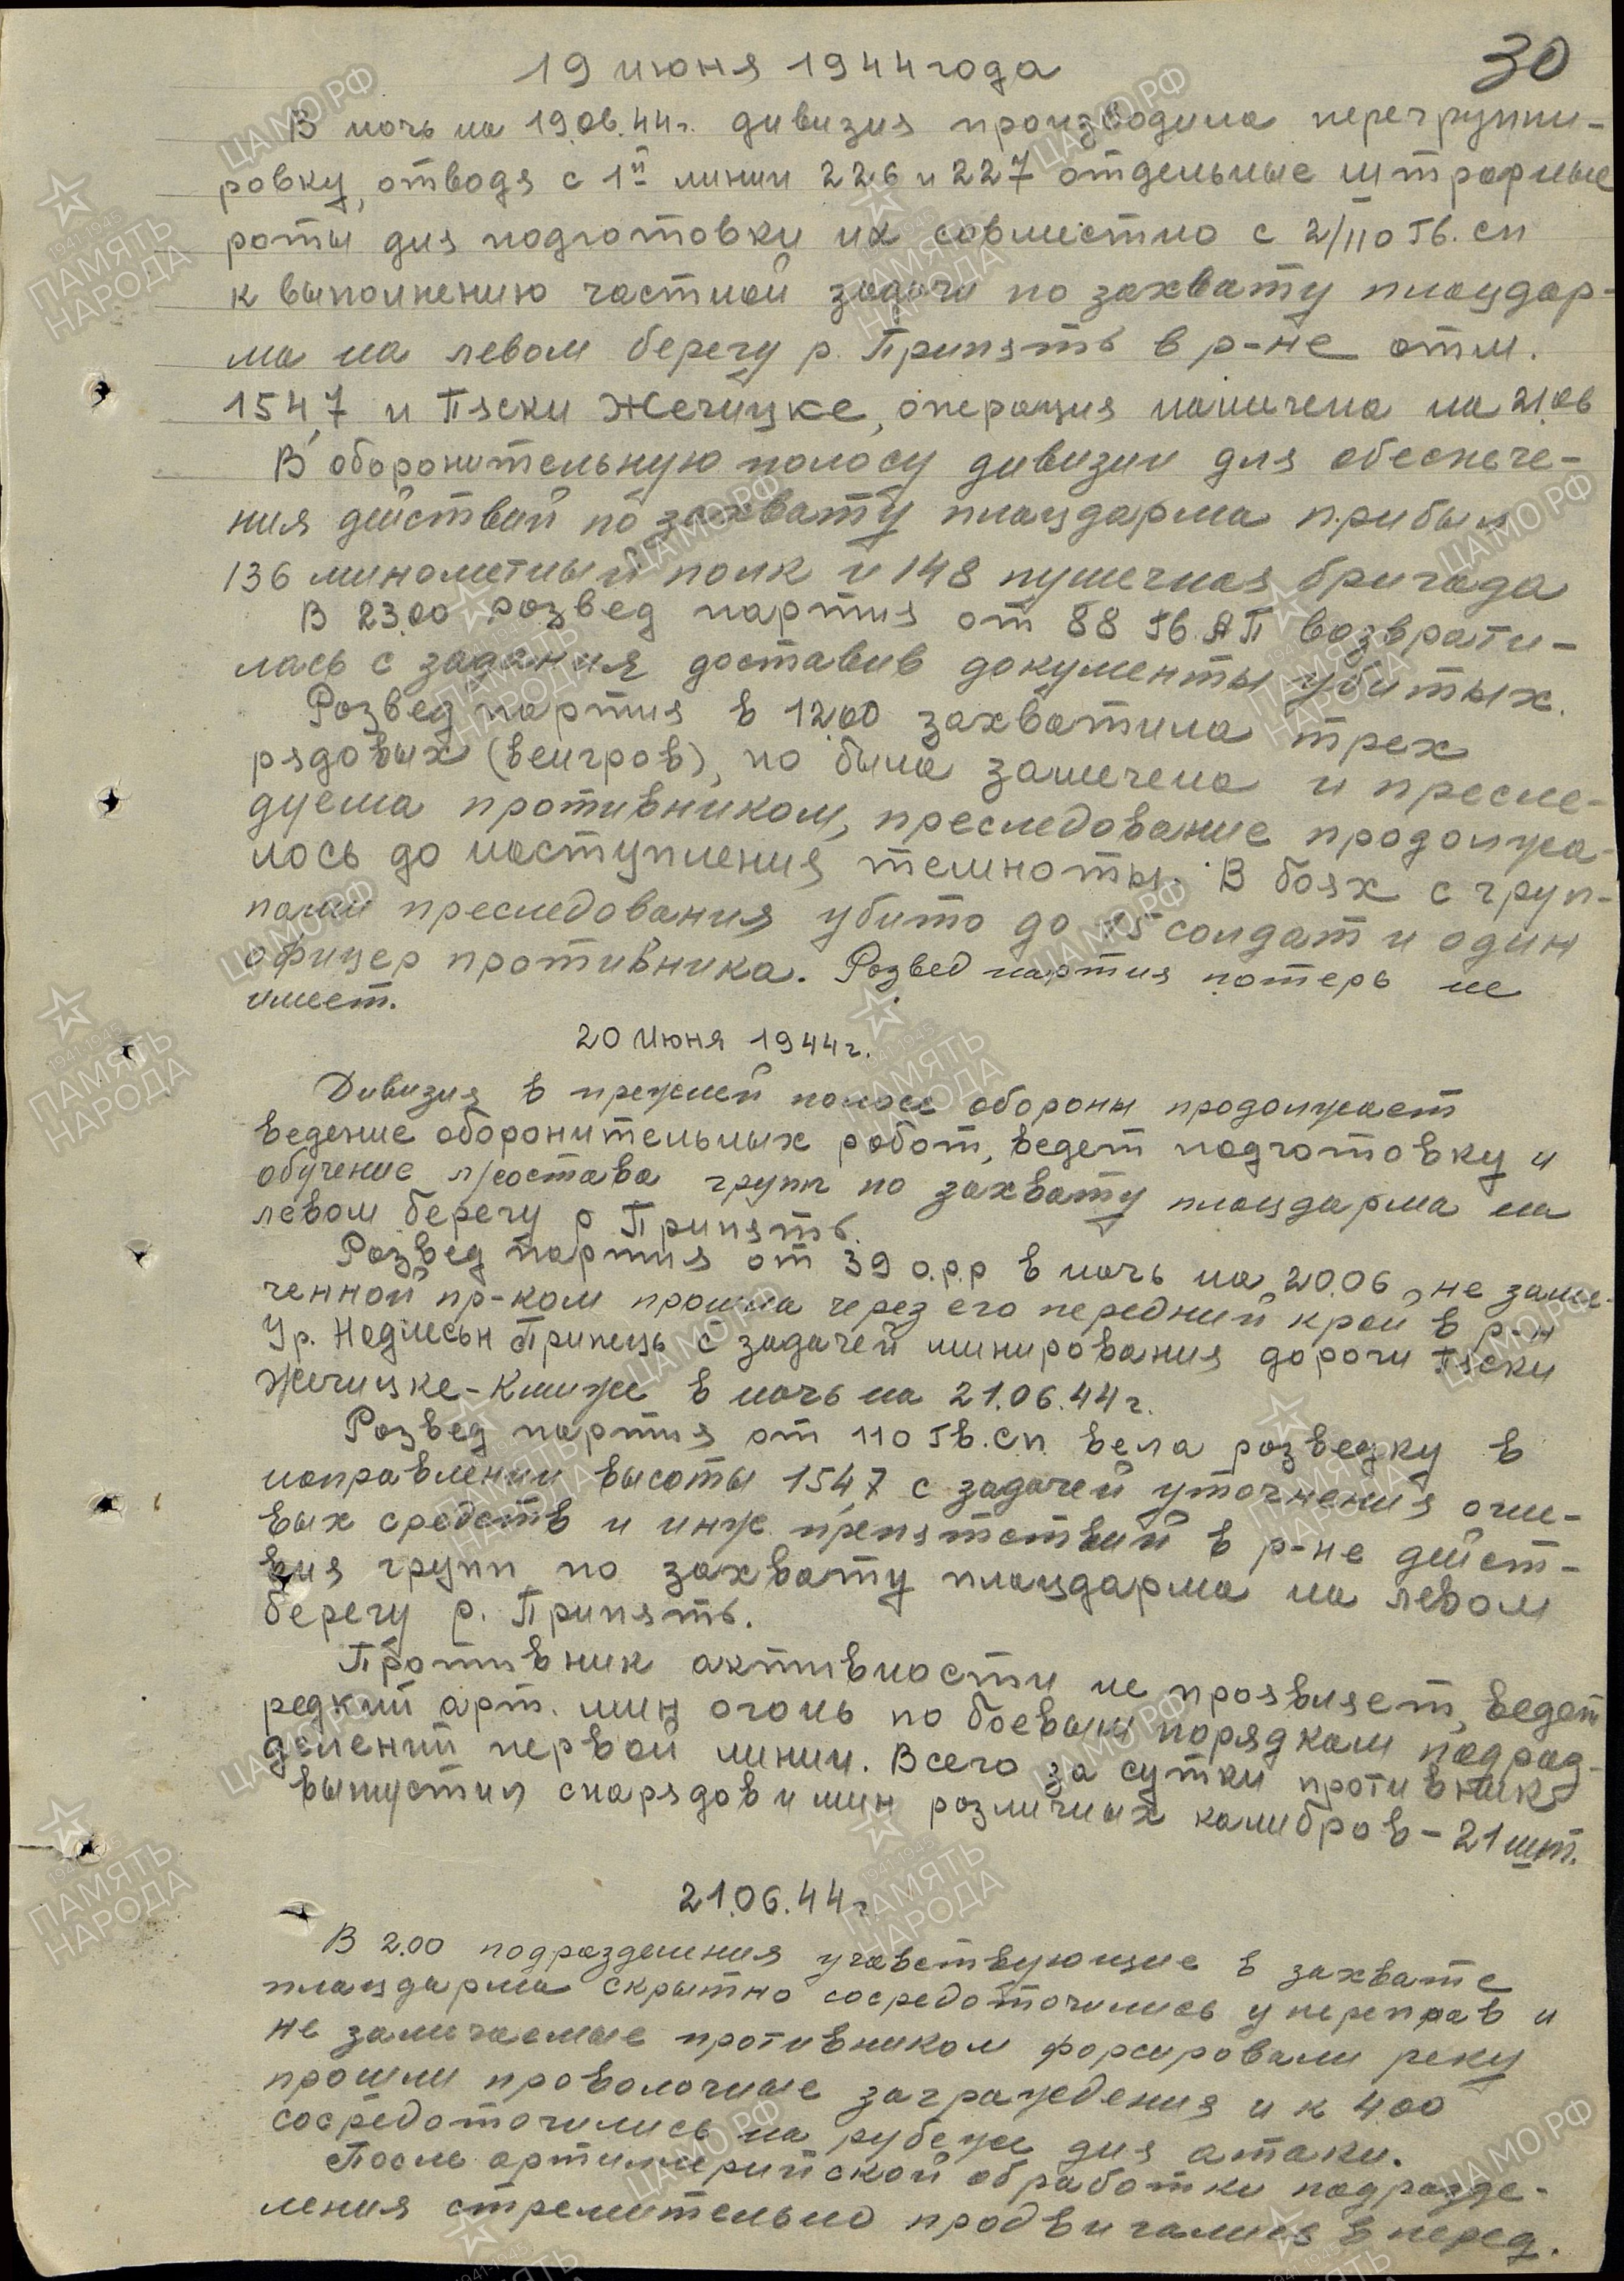 30
19 июня 1944 года
В ночь на 19.06.44г. дивизия производила перегруппи-
ровку, отводя с 1й линии 226 и 227 отдельные штрафные
роты для подготовки их совместно с 2/110 Гв. сп
к выполнению частной задачи по захвату плацдар-
ма на левом берегу р. Припять в р-не отм.
154,7 и Пяски Жечицке, операция намечена на 21.06
В оборонительную полосу дивизии для обеспече-
ния действий по захвату плацдарма прибыл
136 минометный полк и 148 пушечная бригада
В 23.00 развед партия от 88 Гв. АП возврати-
лась с задания доставив документы убитых.
Развед партия в 12.00 захватила трех
рядовых (венгров), но была замечена и пресле-
дуема противником, преследование продолжа-
лось до наступления темноты. В боях с груп-
пами преследования убито до 15 солдат и один
офицер противника. Развед партия потерь не
имеет.
20 Июня 1944г.
Дивизия в прежней полосе обороны продолжает
ведение оборонительных работ, ведет подготовку и
обучение л/состава групп по захвату плацдарма на
левом берегу р Припять.
Развед партия от 39 о.р.р в ночь на 20.06, не заме-
ченной пр-ком прошла через его передний край в р-н
Ур. с задачей минирования дороги Пяски
Жечицке - в ночь на 21.06.44г.
Развед партия от 110 Гв. сп вела разведку в
направлении высоты 154,7 с задачей уточнения огне-
вых средств и инж. препятствий в р-не дейст-
вия групп по захвату плацдарма на левом
берегу р. Припять.
Противник активности не проявляет, ведет
редкий арт. мин огонь по боевым порядкам подраз-
делений первой линии. Всего за сутки противник
выпустил снарядов и мин различных калибров - 21 шт.
21.06.44г
В 2.00 подразделения учавствующие в захвате
плацдарма скрытно сосредоточились у переправ и
не замечаемые противником форсировали реку
прошли проволочные заграждения и к 4.00
сосредоточились на рубеже для атаки.
После артиллерийской обработки подразде-
ления стремительно продвигались вперед.
ЦАМО РФ
1941-1945
ПАМЯТЬ
НАРОДА